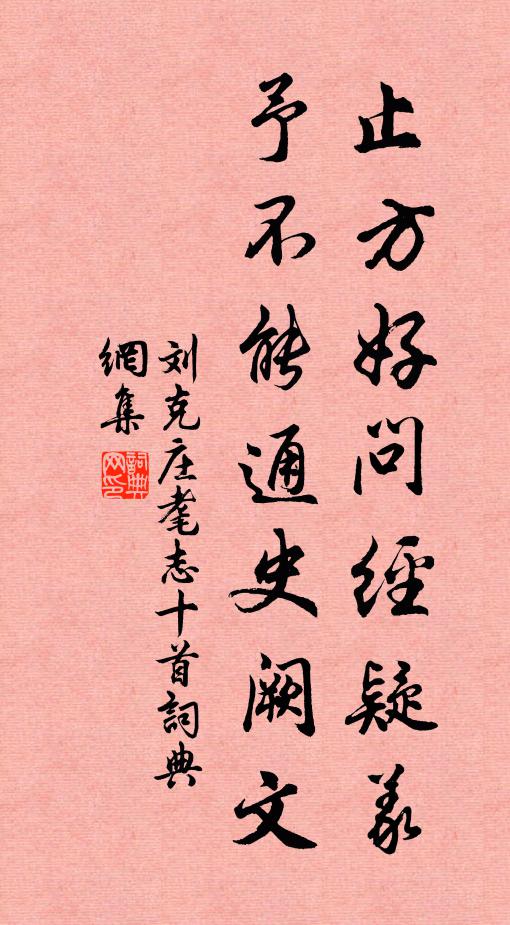 止方好问經疑義
予不能通史阙文
刘克庄耄志十首詞典
網集
詞典
网印